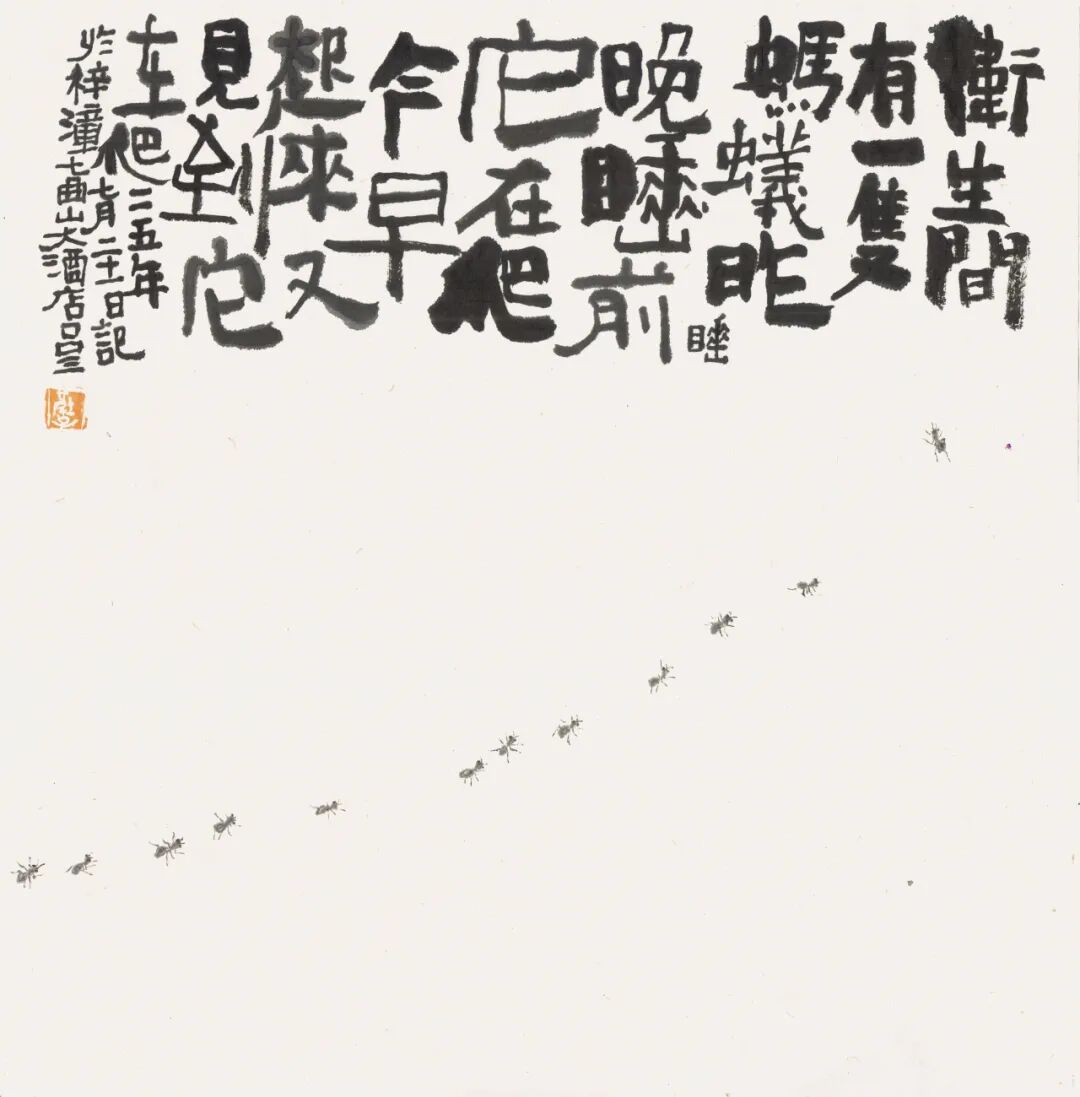 衛生間
有一隻
螞蟻昨
晚睡前
睡
它在爬
今早
起來又
見到它
在爬 二五年
七月二十一日記
於梓潼七曲山大酒店呂三